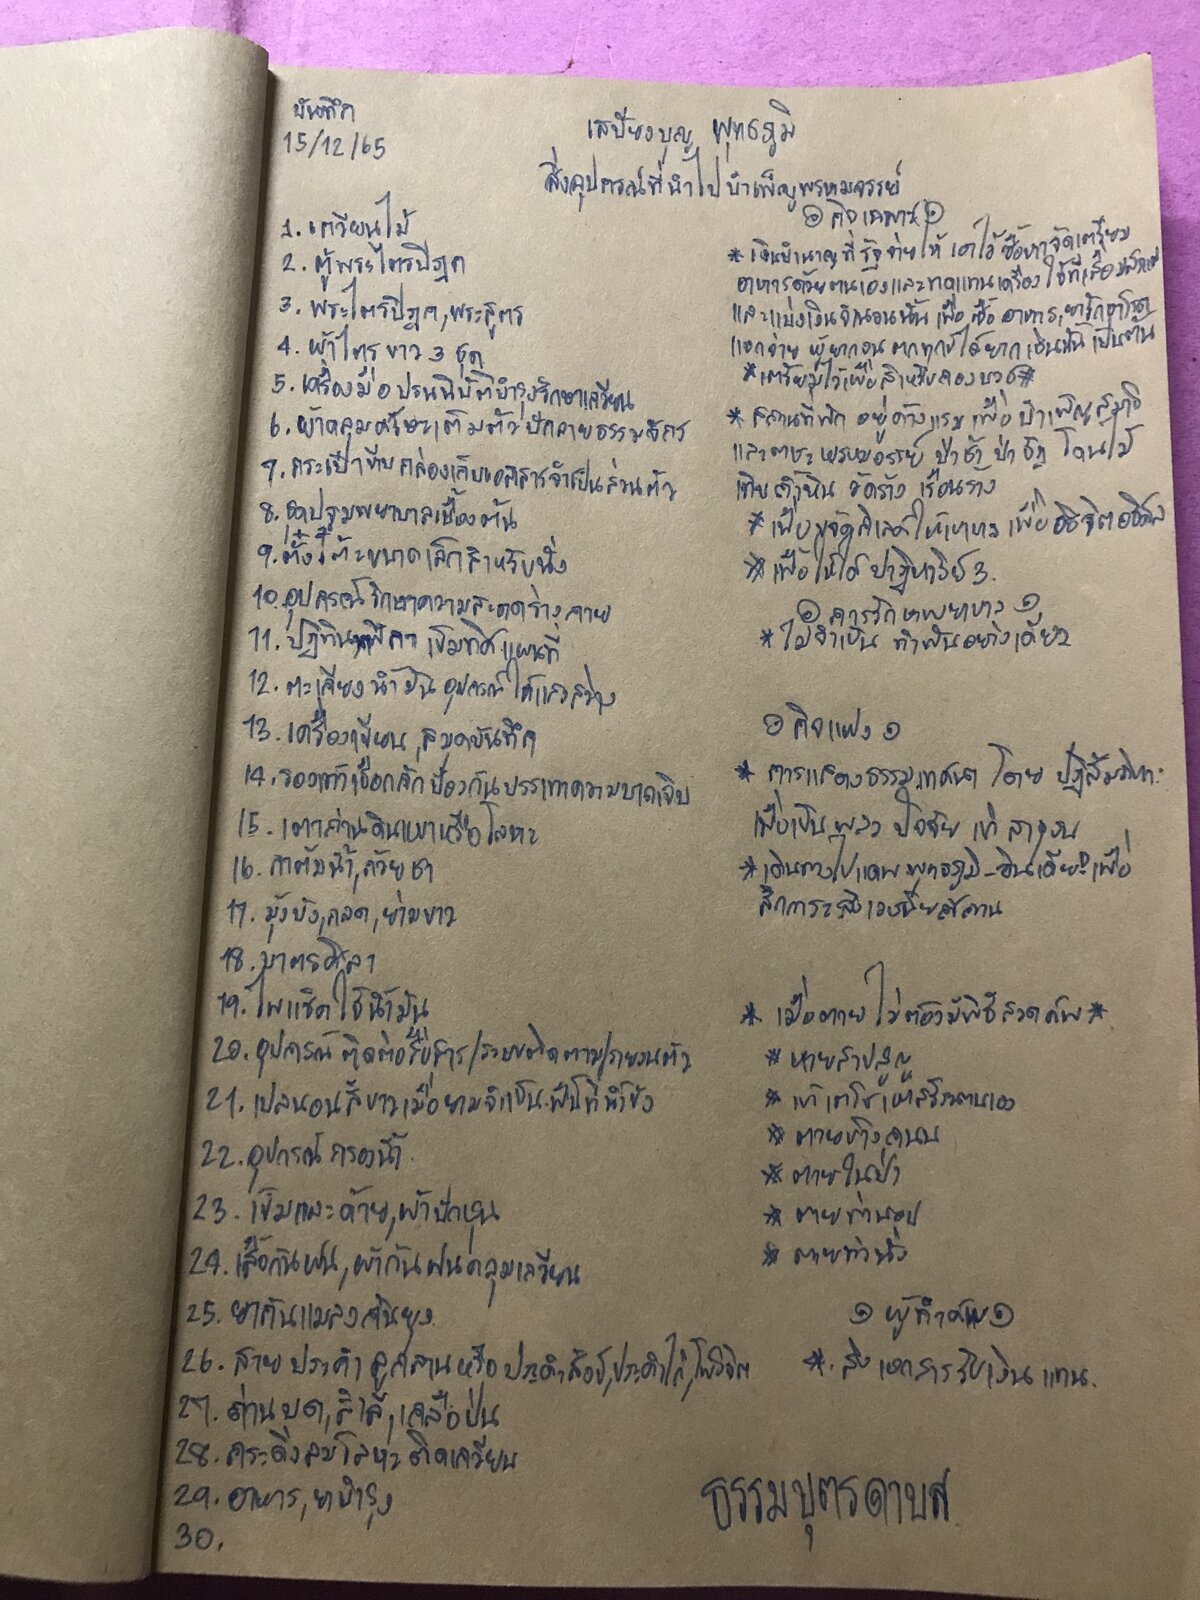 บันทึก
15/12/65
เสบียงบุญ พุทธภูมิ
สิ่งอุปกรณ์ที่นำไปบำเพ็ญพรหมจรรย์
1. เกวียนไม้
2. ตู้พระไตรปิฎก
3. พระไตรปิฎก, พระสูตร
4. ผ้าไตรขาว 3 ชุด
5. เครื่องมือ ปรนนิบัติบำรุงรักษาเกวียน
6. ผ้าคลุมศรีษะเต็มตัวปักลายธรรมจักร
7. กระเป๋าทึบ กล่องเก็บเอกสารจำเป็นส่วนตัว
8. ชุดปฐมพยาบาลเบื้องต้น
9. ตั่งโต๊ะขนาดเล็กสำหรับนั่ง
10. อุปกรณ์รักษาความสะอาดร่างกาย
11. ปฏิทิน นาฬิกา เข็มทิศ แผนที่
12. ตะเกียงน้ำมัน อุปกรณ์ให้แสงสว่าง
13. เครื่องเขียน, สมุดบันทึก
14. รองเท้าเชือกถัก ป้องกันบรรเทาความบาดเจ็บ
15. เตาถ่านดินเผาหรือโลหะ
16. กาต้มน้ำ, ถ้วยชา
17. มุ้งบัง, กลด, ย่ามขาว
18. บาตรศิลา
19. ไฟแช็คใช้น้ำมัน
20. อุปกรณ์ติดต่อสื่อสาร/ระบบติดตาม/รายงานตัว
21. เปลนอนสีขาวเมื่อยามจำเป็น พื้นที่น้ำขัง
22. อุปกรณ์กรองน้ำ
23. เข็มและด้าย, ผ้าปักชุน
24. เสื้อกันฝน, ผ้ากันฝนคลุมเกวียน
25. ยากันแมลงกันยุง
26. สายประคำ ลูกสลานหรือประคำหินอ่อน, ประคำไม้, โพธิจิต
27. ถ่านบด, สำลี, เกลือป่น
28. กระดิ่งลมโลหะติดเกวียน
29. อาหาร, ยาบำรุง
30.
๑ กิจเฉพาะ ๑
* เงินบำนาญที่รัฐจ่ายให้ เอาไว้ซื้อหาจัดเตรียม
อาหารด้วยตนเองและทดแทนเครื่องใช้ที่เสื่อม
และแบ่งเงินจำนวนนั้น เพื่อ ซื้อ อาหาร, ยารักษาโรค
แจกจ่าย ผู้ยากจน ตกทุกข์ได้ยาก เช่นนั้น เป็นต้น
*เตรียมไว้เพื่อสำหรับกองบวช*
* สถานที่พัก อยู่ค้างแรม เพื่อ บำเพ็ญสมาธิ
และตบะพรหมจรรย์ ป่าช้า ป่าชัฏ โคนไม้
เทือกถ้ำหิน วัดร้าง เรือนร้าง
* เพื่อขจัดกิเลสให้เบาบาง เพื่ออธิจิตอธิศีล
* เพื่อให้ได้ปาฏิหาริย์ 3.
๑ การรักษาพยาบาล ๑
* ไม่จำเป็น ทำฟันอย่างเดียว
๑ กิจแฝง ๑
* การแสดงธรรมเทศนา โดย ปฏิสัมภิทา
เพื่อเป็น พลวปัจจัย แก่ สาธุชน
* เดินทางไปแดนพุทธภูมิ-อินเดีย เพื่อ
สักการะสังเวชนียสถาน
* เมื่อตาย ไม่ต้องมีพิธีสวดศพ *
* หายสาปสูญ
* เข้าเตโชเผาสรีระตนเอง
* ตายข้างถนน
* ตายในป่า
* ตายท่านอน
* ตายท่านั่ง
๑ ผู้ทำศพ ๑
* สิ่งเอกสารรับเงินแทน.
ธรรมบุตรดาบส